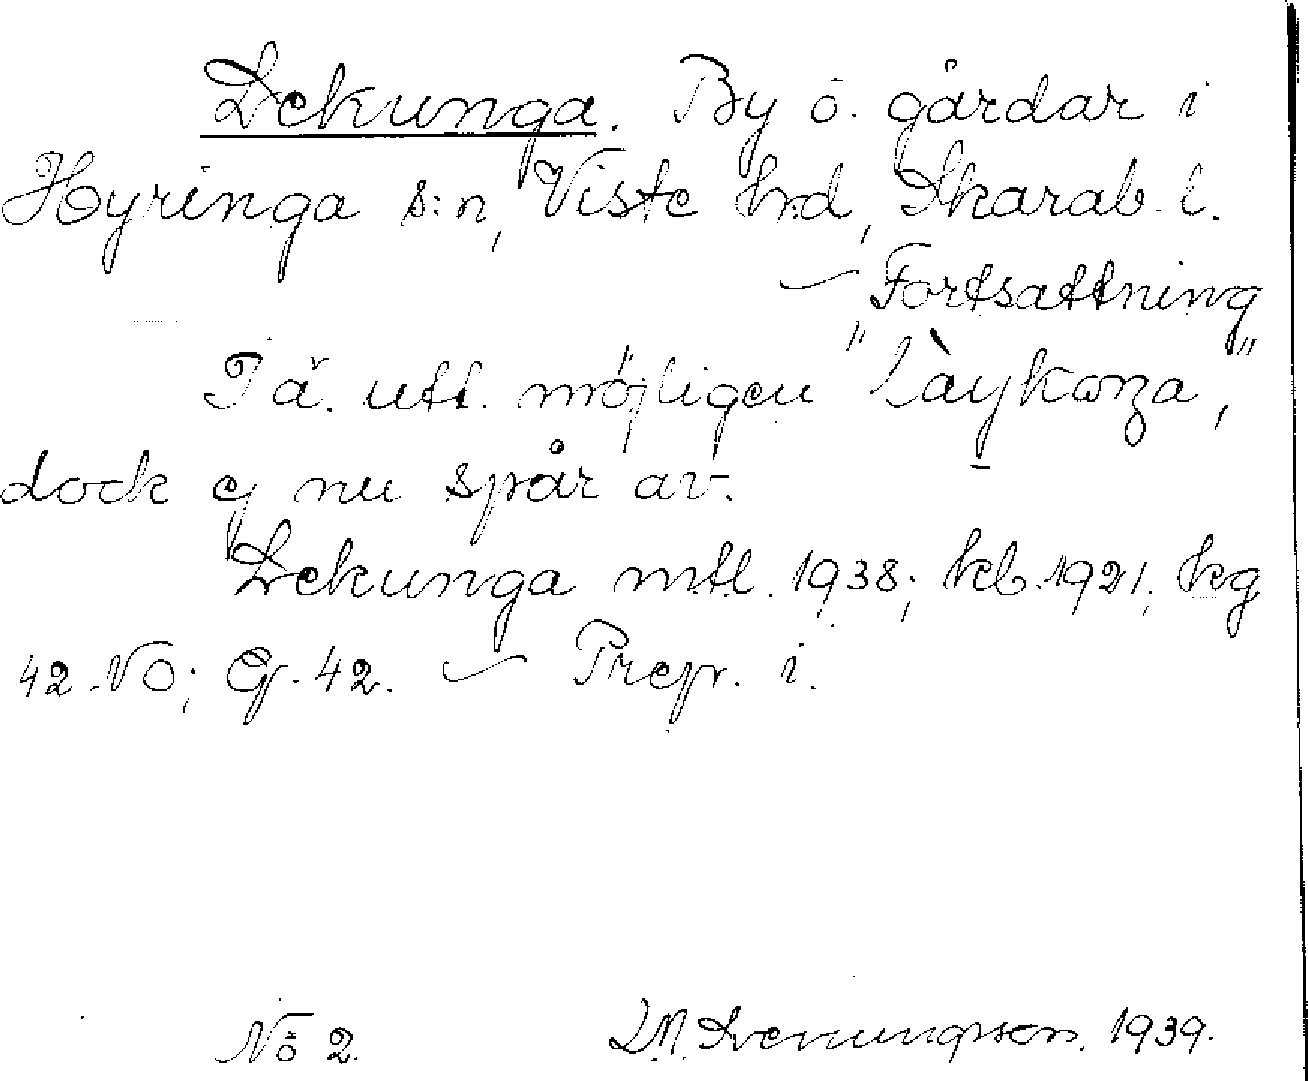 Lekunga. By o. gårdar i
Hyringa s:n, Viste h:d, Skarab. l.
— Fortsättning
Tä. utt. möjligen "làykɷŋa",
dock ej nu spår av.
Lekunga mtl. 1938; kb. 1921; kg
42. NO; Gj. 42. — Prep. i.
No 2. 1939.